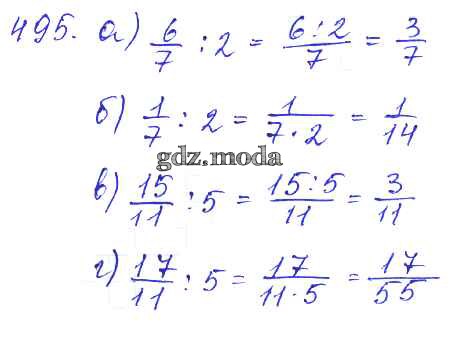 495. а) 6/7 : 2 = 6:2/7 = 3/7
б) 1/7 : 2 = 1/7·2 = 1/14
gdz.moda
в) 15/11 : 5 = 15:5/11 = 3/11
г) 17/11 : 5 = 17/11·5 = 17/55